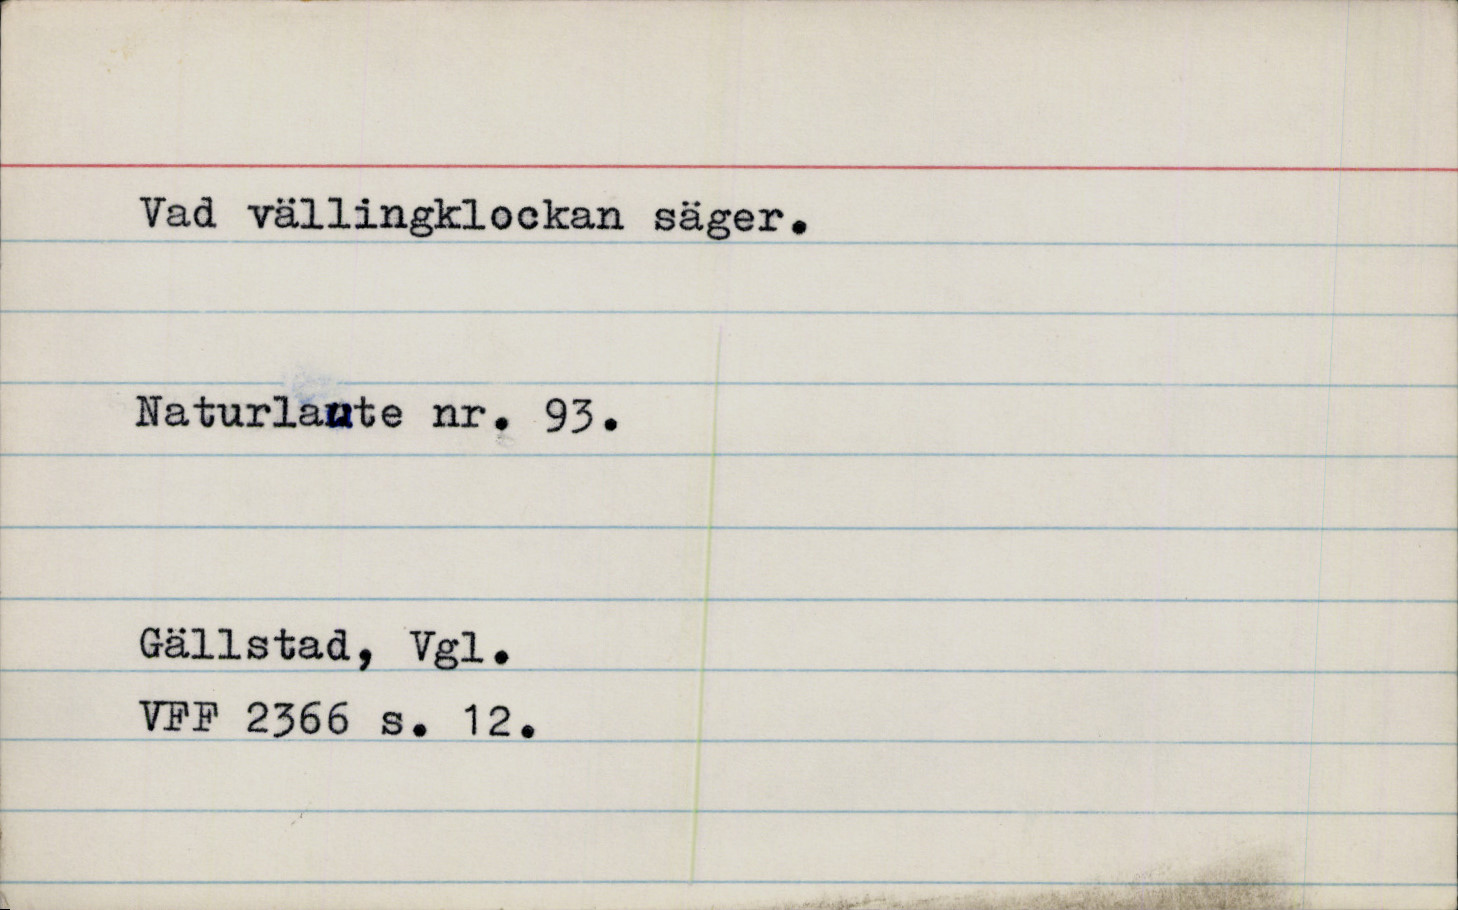 Vad vällingklockan säger.
Naturlaute nr. 93.
Gällstad, Vgl.
VFF 2366 s. 12.